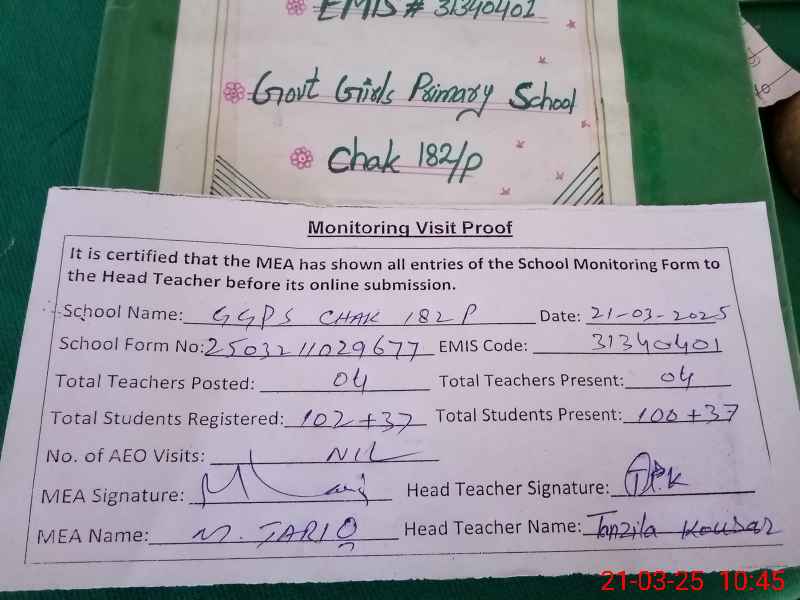 EMIS # 31340401
Govt Girls Primary School
Chak 182/p
Monitoring Visit Proof
It is certified that the MEA has shown all entries of the School Monitoring Form to
the Head Teacher before its online submission.
School Name: GGPS CHAK 182 P Date: 21-03-2025
School Form No: 2503211029677 EMIS Code: 31340401
Total Teachers Posted: 04 Total Teachers Present: 04
Total Students Registered: 102+37 Total Students Present: 100+37
No. of AEO Visits: NIL
MEA Signature: Head Teacher Signature:
MEA Name: M. TARIQ Head Teacher Name: Tanzila Kousar
21-03-25 10:45